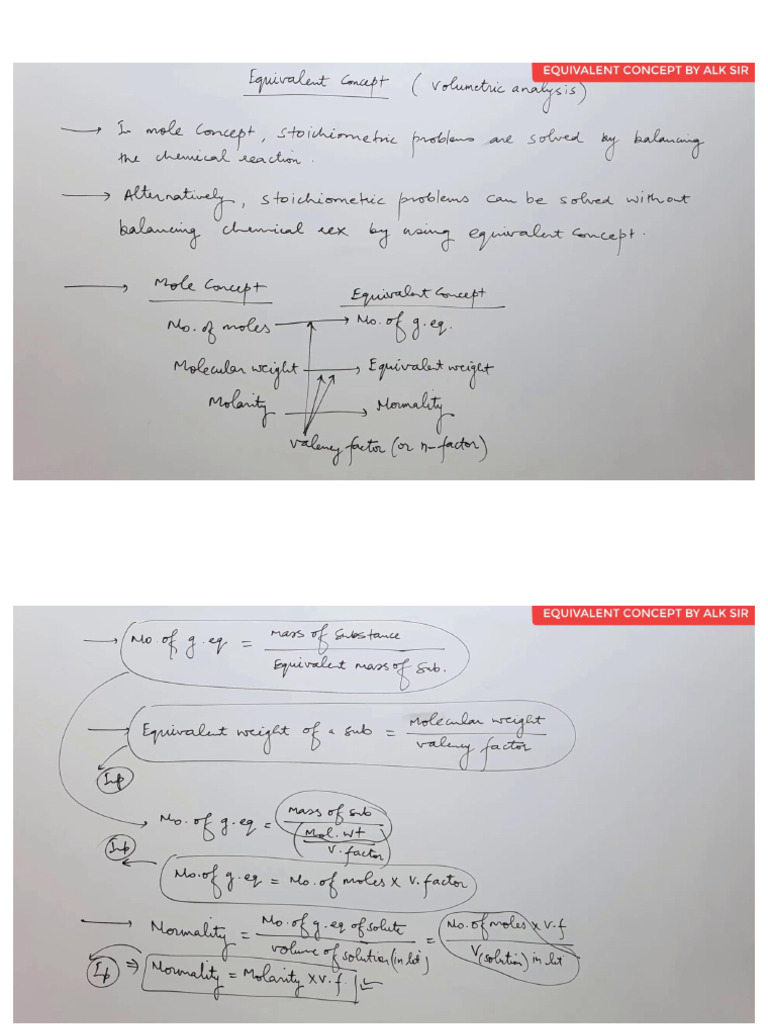 EQUIVALENT CONCEPT BY ALK SIR
Equivalent Concept (Volumetric analysis)
→ In mole Concept, stoichiometric problems are solved by balancing
the chemical reaction.
→ Alternatively, stoichiometric problems can be solved without
balancing chemical rex by using equivalent Concept.
→ Mole Concept Equivalent Concept
No. of moles → No. of g. eq.
Molecular weight → Equivalent weight
Molarity → Normality
valency factor (or n-factor)
EQUIVALENT CONCEPT BY ALK SIR
→ No. of g. eq = mass of substance / Equivalent mass of sub.
→ Equivalent weight of a sub = Molecular weight / valency factor
Imp
→ No. of g. eq = mass of sub / (Mol. wt / V. factor)
Imp
No. of g. eq = No. of moles x V. factor
→ Normality = No. of g. eq of solute / volume of solution (in lit) = No. of moles x v.f / V(solution) in lit
Imp ⇒ Normality = Molarity x v.f.